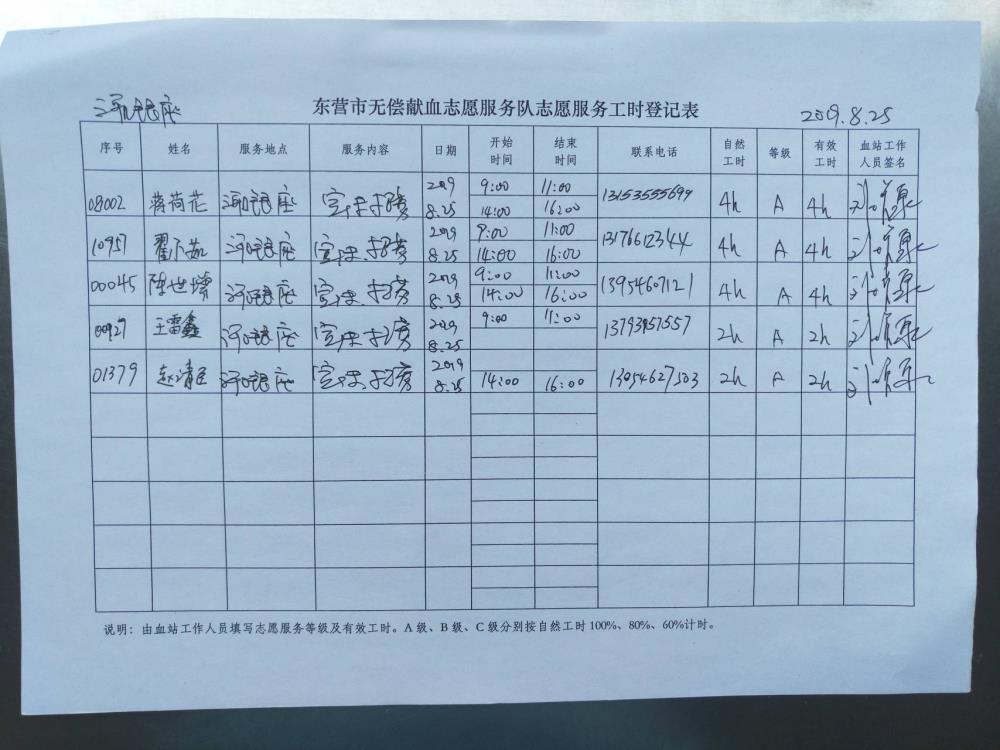 东营市无偿献血志愿服务队志愿服务工时登记表
银座 2019.8.25
序号 姓名 服务地点 服务内容 日期 开始时间 结束时间 联系电话 自然工时 等级 有效工时 血站工作人员签名
08002 蒋荷花 银座 宣传招募 2019 8.25 9:00 11:00 14:00 16:00 13153555699 4h A 4h
10957 银座 宣传招募 2019 8.25 9:00 11:00 14:00 16:00 13176612344 4h A 4h
00045 陈世 银座 宣传招募 2019 8.25 9:00 11:00 14:00 16:00 13954607121 4h A 4h
00927 王雷鑫 银座 宣传招募 2019 8.25 9:00 11:00 13793957557 2h A 2h
01379 赵清 银座 宣传招募 2019 8.25 14:00 16:00 13054627503 2h A 2h
说明：由血站工作人员填写志愿服务等级及有效工时。A 级、B 级、C 级分别按自然工时 100%、80%、60%计时。